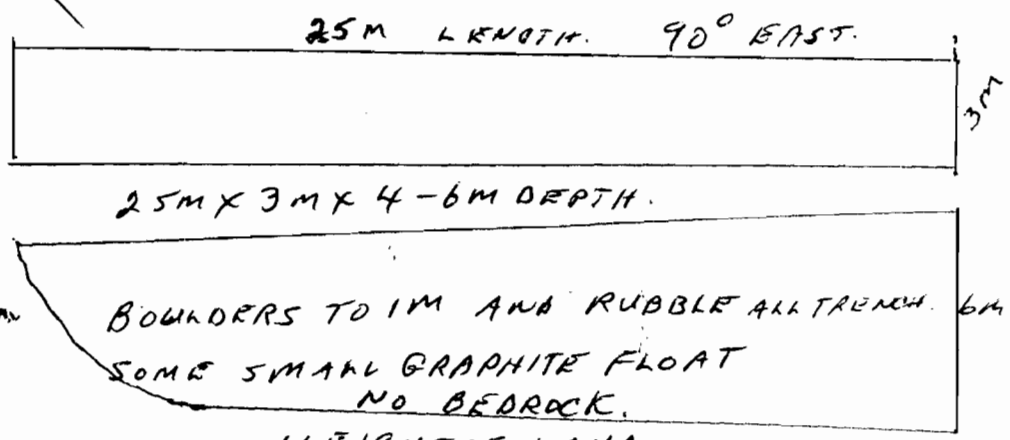 25M LENGTH. 90° EAST.
3M
25M X 3M X 4-6M DEPTH.
BOULDERS TO 1M AND RUBBLE ALL TRENCH. 6M
SOME SMALL GRAPHITE FLOAT
NO BEDROCK.